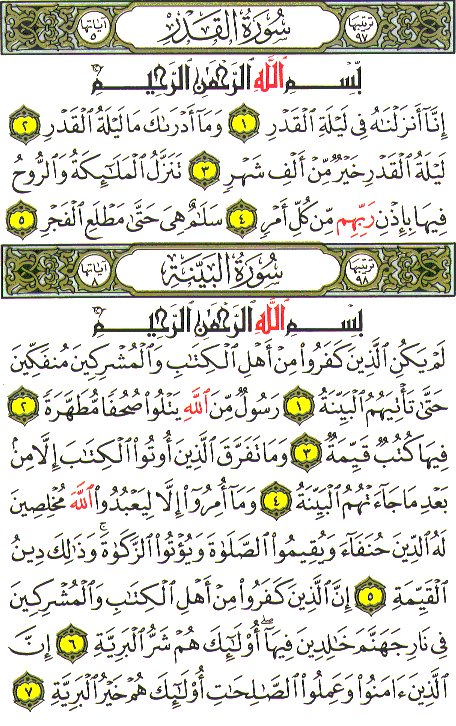 ترتيبها ٩٧ سُورَةُ القَدْرِ آياتها ٥
بِسْمِ اللَّهِ الرَّحْمَٰنِ الرَّحِيمِ
إِنَّآ أَنزَلْنَٰهُ فِى لَيْلَةِ ٱلْقَدْرِ ١ وَمَآ أَدْرَىٰكَ مَا لَيْلَةُ ٱلْقَدْرِ ٢
لَيْلَةُ ٱلْقَدْرِ خَيْرٌ مِّنْ أَلْفِ شَهْرٍ ٣ تَنَزَّلُ ٱلْمَلَٰٓئِكَةُ وَٱلرُّوحُ
فِيهَا بِإِذْنِ رَبِّهِم مِّن كُلِّ أَمْرٍ ٤ سَلَٰمٌ هِىَ حَتَّىٰ مَطْلَعِ ٱلْفَجْرِ ٥
ترتيبها ٩٨ سُورَةُ البَيِّنَةِ آياتها ٨
بِسْمِ اللَّهِ الرَّحْمَٰنِ الرَّحِيمِ
لَمْ يَكُنِ ٱلَّذِينَ كَفَرُوا۟ مِنْ أَهْلِ ٱلْكِتَٰبِ وَٱلْمُشْرِكِينَ مُنفَكِّينَ
حَتَّىٰ تَأْتِيَهُمُ ٱلْبَيِّنَةُ ١ رَسُولٌ مِّنَ ٱللَّهِ يَتْلُوا۟ صُحُفًا مُّطَهَّرَةً ٢
فِيهَا كُتُبٌ قَيِّمَةٌ ٣ وَمَا تَفَرَّقَ ٱلَّذِينَ أُوتُوا۟ ٱلْكِتَٰبَ إِلَّا مِنۢ
بَعْدِ مَا جَآءَتْهُمُ ٱلْبَيِّنَةُ ٤ وَمَآ أُمِرُوٓا۟ إِلَّا لِيَعْبُدُوا۟ ٱللَّهَ مُخْلِصِينَ
لَهُ ٱلدِّينَ حُنَفَآءَ وَيُقِيمُوا۟ ٱلصَّلَوٰةَ وَيُؤْتُوا۟ ٱلزَّكَوٰةَ ۚ وَذَٰلِكَ دِينُ
ٱلْقَيِّمَةِ ٥ إِنَّ ٱلَّذِينَ كَفَرُوا۟ مِنْ أَهْلِ ٱلْكِتَٰبِ وَٱلْمُشْرِكِينَ
فِى نَارِ جَهَنَّمَ خَٰلِدِينَ فِيهَآ ۚ أُو۟لَٰٓئِكَ هُمْ شَرُّ ٱلْبَرِيَّةِ ٦ إِنَّ
ٱلَّذِينَ ءَامَنُوا۟ وَعَمِلُوا۟ ٱلصَّٰلِحَٰتِ أُو۟لَٰٓئِكَ هُمْ خَيْرُ ٱلْبَرِيَّةِ ٧